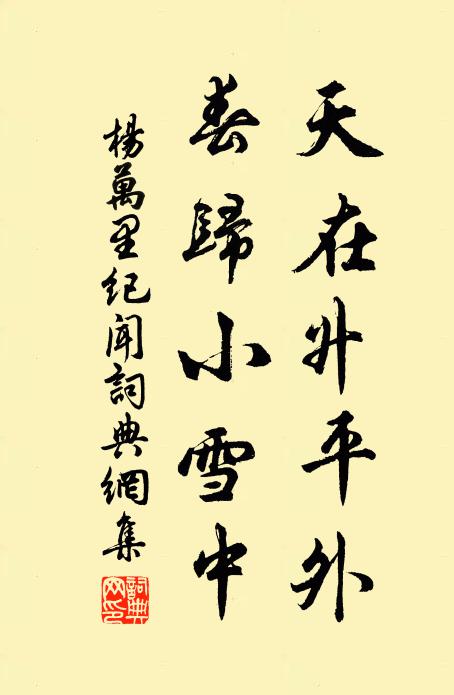 天在升平外
春歸小雪中
楊萬里紀聞詞典網集
詞典
网印